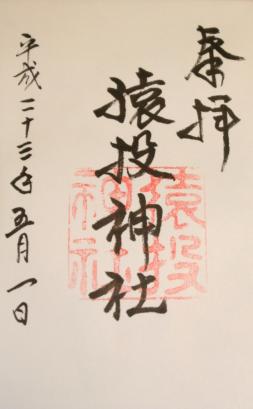 奉拝
猿投神社
猿投神社
平成二十三年五月一日